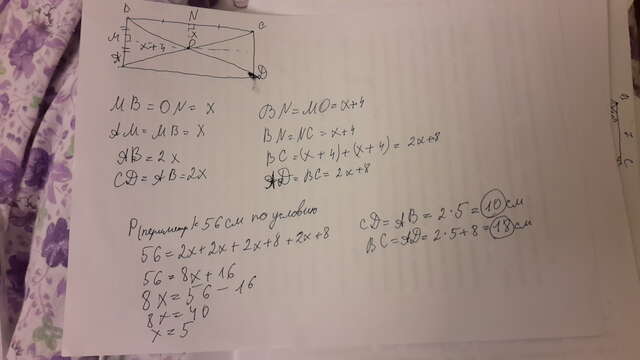 B N C
M x+4 x O
A D
MB = ON = x
AM = MB = x
AB = 2x
CD = AB = 2x
BN = MO = x+4
BN = NC = x+4
BC = (x+4)+(x+4) = 2x+8
AD = BC = 2x+8
P(периметр)= 56 см по условию
56 = 2x+2x+2x+8+2x+8
56 = 8x+16
8x = 56-16
8x = 40
x = 5
CD = AB = 2·5 = 10 см
BC = AD = 2·5+8 = 18 см